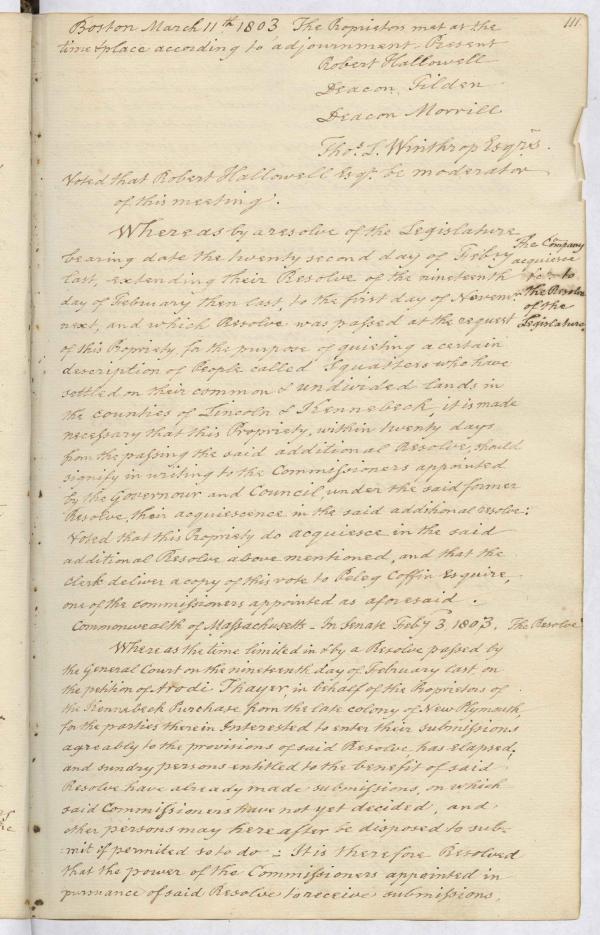 111.
Boston March 11th 1803 The Proprietors met at the
time & place according to adjournment. Present
Robert Hallowell
Deacon Tilden
Deacon Morrill
Thos. L. Winthrop Esqrs.
Voted that Robert Hallowell Esqr. be moderator
of this meeting.
Whereas by a resolve of the Legislature
bearing date the twenty second day of Feb'ry
last, extending their Resolve of the nineteenth
day of February then last, to the first day of Novem.
next, and which Resolve was passed at the request
of this Propriety, for the purpose of quieting a certain
description of People called Squatters who have
settled on their common & undivided lands in
the counties of Lincoln & Kennebeck, it is made
necessary that this Propriety, within twenty days
from the passing the said additional Resolve, should
signify in writing to the Commissioners appointed
by the Governour and Council, under the said former
Resolve, their acquiescence in the said additional resolve:
Voted that this Propriety do acquiesce in the said
additional Resolve above mentioned, and that the
Clerk deliver a copy of this vote to Peleg Coffin Esquire,
one of the commissioners appointed as aforesaid.
The Company
acquiesce
to
the Resolve
of the
Legislature.
Commonwealth of Massachusetts - In Senate Feby 3 1803.
The Resolve
Whereas the time limited in & by a Resolve passed by
the General Court on the nineteenth day of February last, on
the petition of Arodi Thayer, in behalf of the Proprietors of
the Kennebeck Purchase from the late colony of New Plymouth,
for the parties therein Interested to enter their submissions
agreably to the provisions of said Resolve has elapsed;
and sundry persons entitled to the benefit of said
Resolve have already made submissions, on which
said Commissioners have not yet decided, and
other persons may hereafter be disposed to sub-
mit if permited so to do - It is therefore Resolved
that the power of the Commissioners appointed in
pursuance of said Resolve to receive submissions,